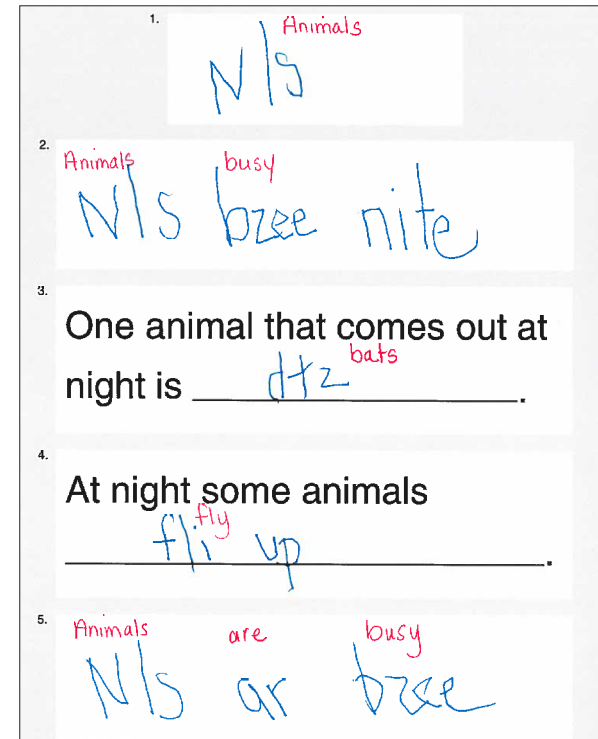 1. Animals
Nls
2. Animals busy
Nls bzee nite
3. One animal that comes out at
night is dtz bats.
4. At night some animals
fli fly up.
5. Animals are busy
Nls ar bzee